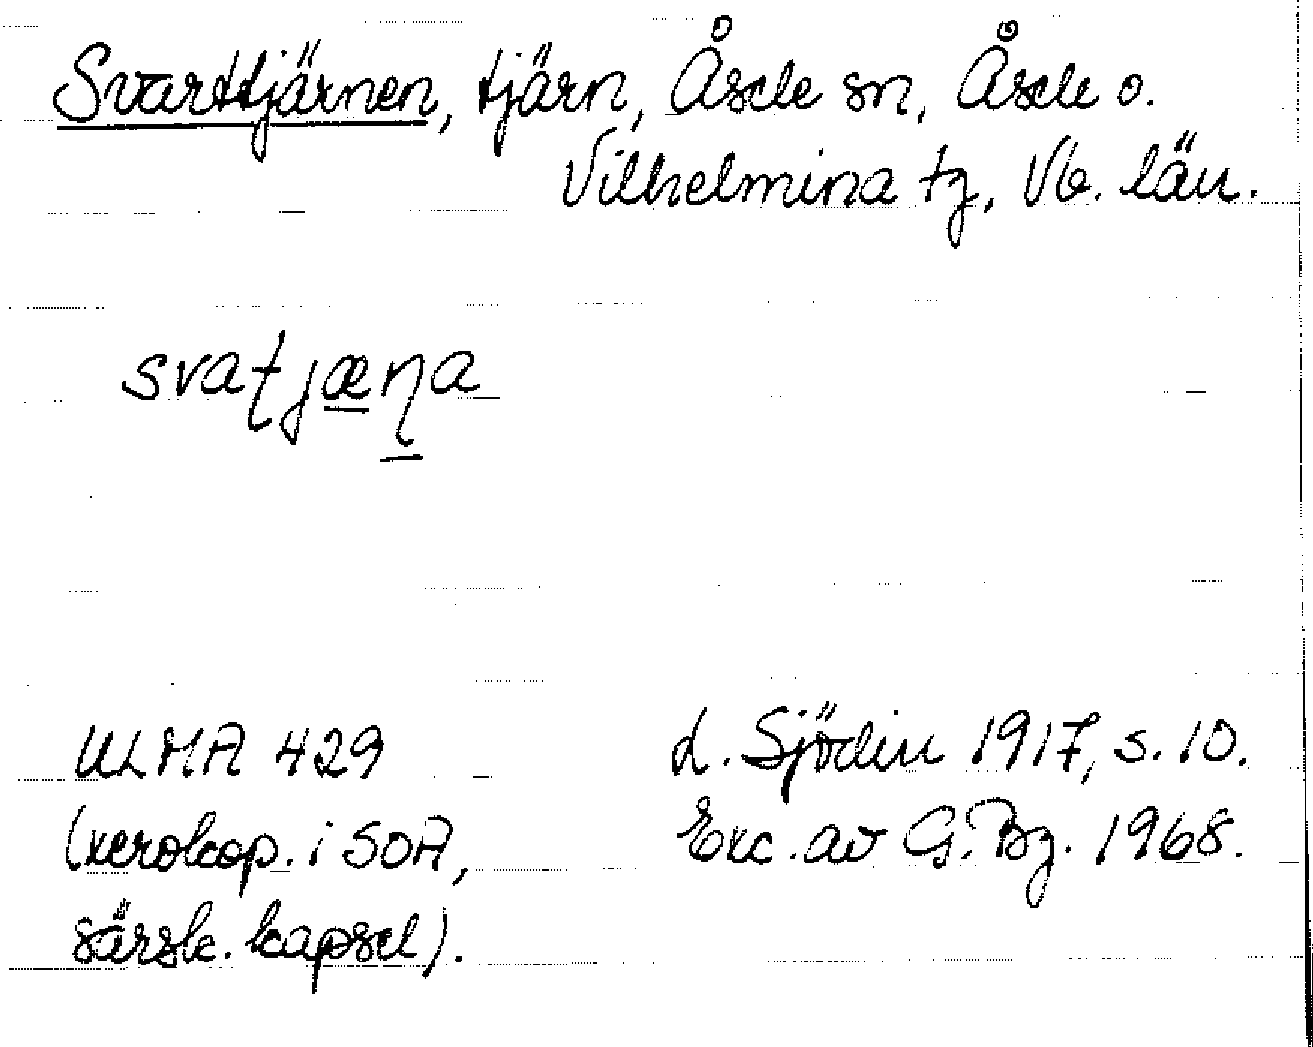 Svarttjärnen, tjärn, Åsele sn, Åsele o.
Vilhelmina tg, Vb. län.
svaʈjæɳa
ULMA 429
(xerokop. i SOA,
särsk. kapsel).
L. Sjödin 1917, s. 10.
Exc. av G. Bg. 1968.